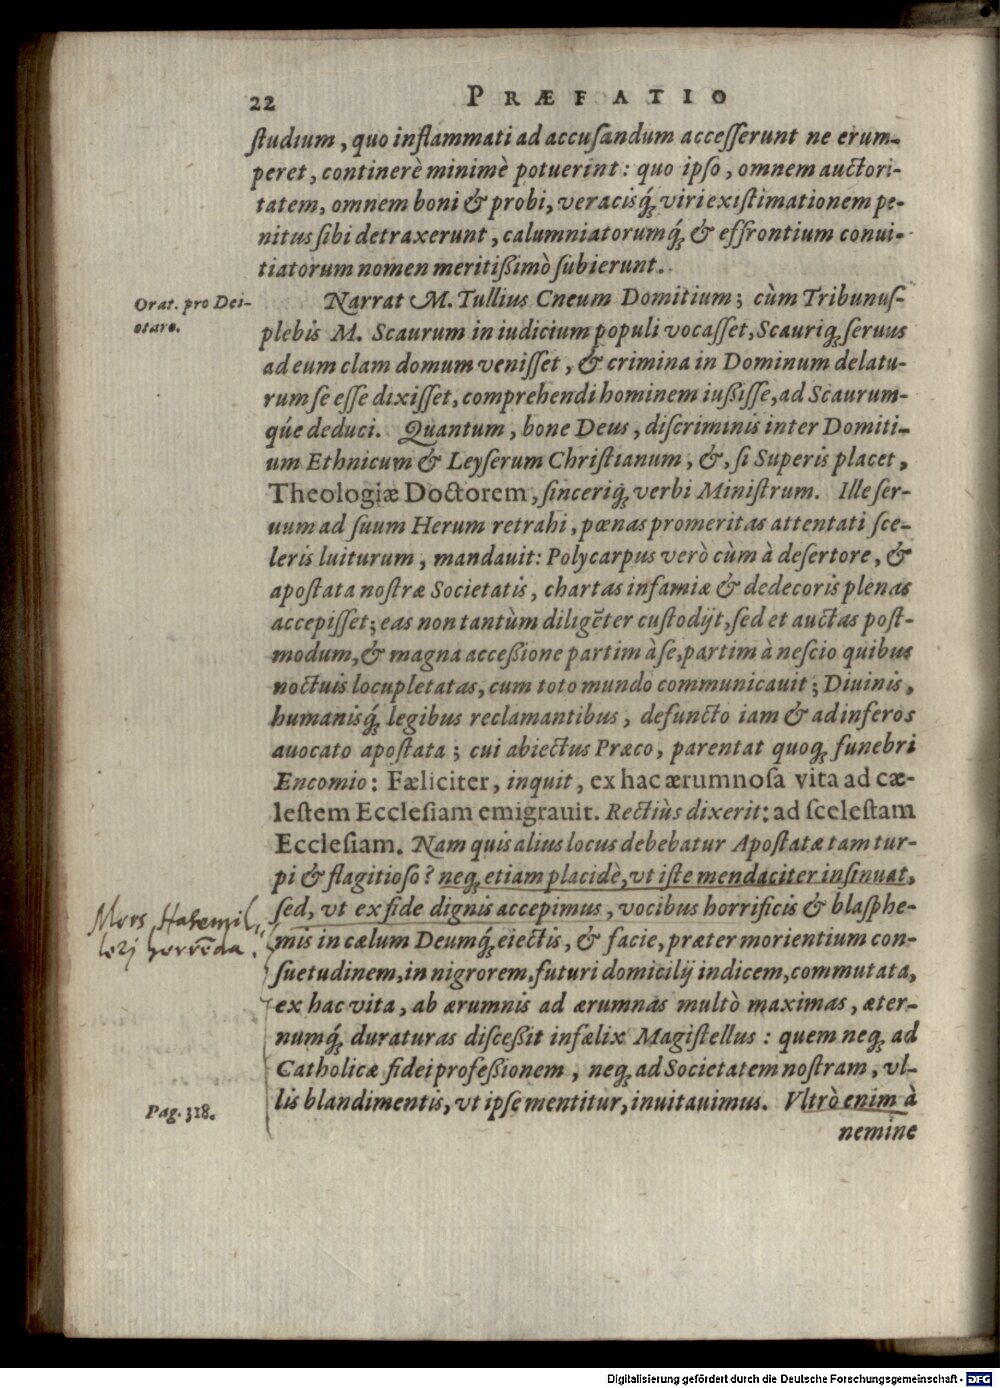 22 PRÆFATIO
ſtudium, quo inflammati ad accuſandum acceſſerunt ne erum-
peret, continerè minimè potuerint: quo ipſo, omnem auctori-
tatem, omnem boni & probi, veracisq́; viri exiſtimationem pe-
nitus ſibi detraxerunt, calumniatorumq́; & effrontium conui-
tiatorum nomen meritißimò ſubierunt.
Orat. pro Dei-
otaro.
Narrat M. Tullius Cneum Domitium; cùm Tribunuſ-
plebis M. Scaurum in iudicium populi vocaſſet, Scauriq; ſeruus
ad eum clam domum veniſſet, & crimina in Dominum delatu-
rum ſe eſſe dixiſſet, comprehendi hominem iußiſſe, ad Scaurum-
qúe deduci. Quantum, bone Deus, diſcriminis inter Domiti-
um Ethnicum & Leyſerum Chriſtianum, &, ſi Superis placet,
Theologiæ Doctorem, ſinceriq́; verbi Miniſtrum. Ille ſer-
uum ad ſuum Herum retrahi, pœnas promeritas attentati ſce-
leris luiturum, mandauit: Polycarpus verò cùm à deſertore, &
apoſtata noſtræ Societatis, chartas infamiæ & dedecoris plenas
accepiſſet; eas non tantùm diligẽter cuſtodijt, ſed et auctas poſt-
modum, & magna acceßione partim à ſe, partim à neſcio quibus
noctuis locupletatas, cum toto mundo communicauit; Diuinis,
humanisq́; legibus reclamantibus, defuncto iam & ad inferos
auocato apoſtata; cui abiectus Præco, parentat quoq; funebri
Encomio: Fæliciter, inquit, ex hac ærumnoſa vita ad cæ-
leſtem Eccleſiam emigrauit. Rectiùs dixerit: ad ſceleſtam
Eccleſiam. Nam quis alius locus debebatur Apoſtatæ tam tur-
pi & flagitioſo? neq; etiam placidè, vt iſte mendaciter inſinuat,
ſed, vt ex fide dignis accepimus, vocibus horrificis & blaſphe-
Mors Haſenmil-
lerj horrẽda.
mis in cælum Deumq́; eiectis, & facie, præter morientium con-
ſuetudinem, in nigrorem, futuri domicilij indicem, commutata,
ex hac vita, ab ærumnis ad ærumnas multò maximas, æter-
numq́; duraturas diſceßit infælix Magiſtellus: quem neq; ad
Catholicæ fidei profeßionem, neq; ad Societatem noſtram, vl-
Pag. 318.
lis blandimentis, vt ipſe mentitur, inuitauimus. Vltrò enim à
nemine
Digitalisierung gefördert durch die Deutsche Forschungsgemeinschaft - DFG